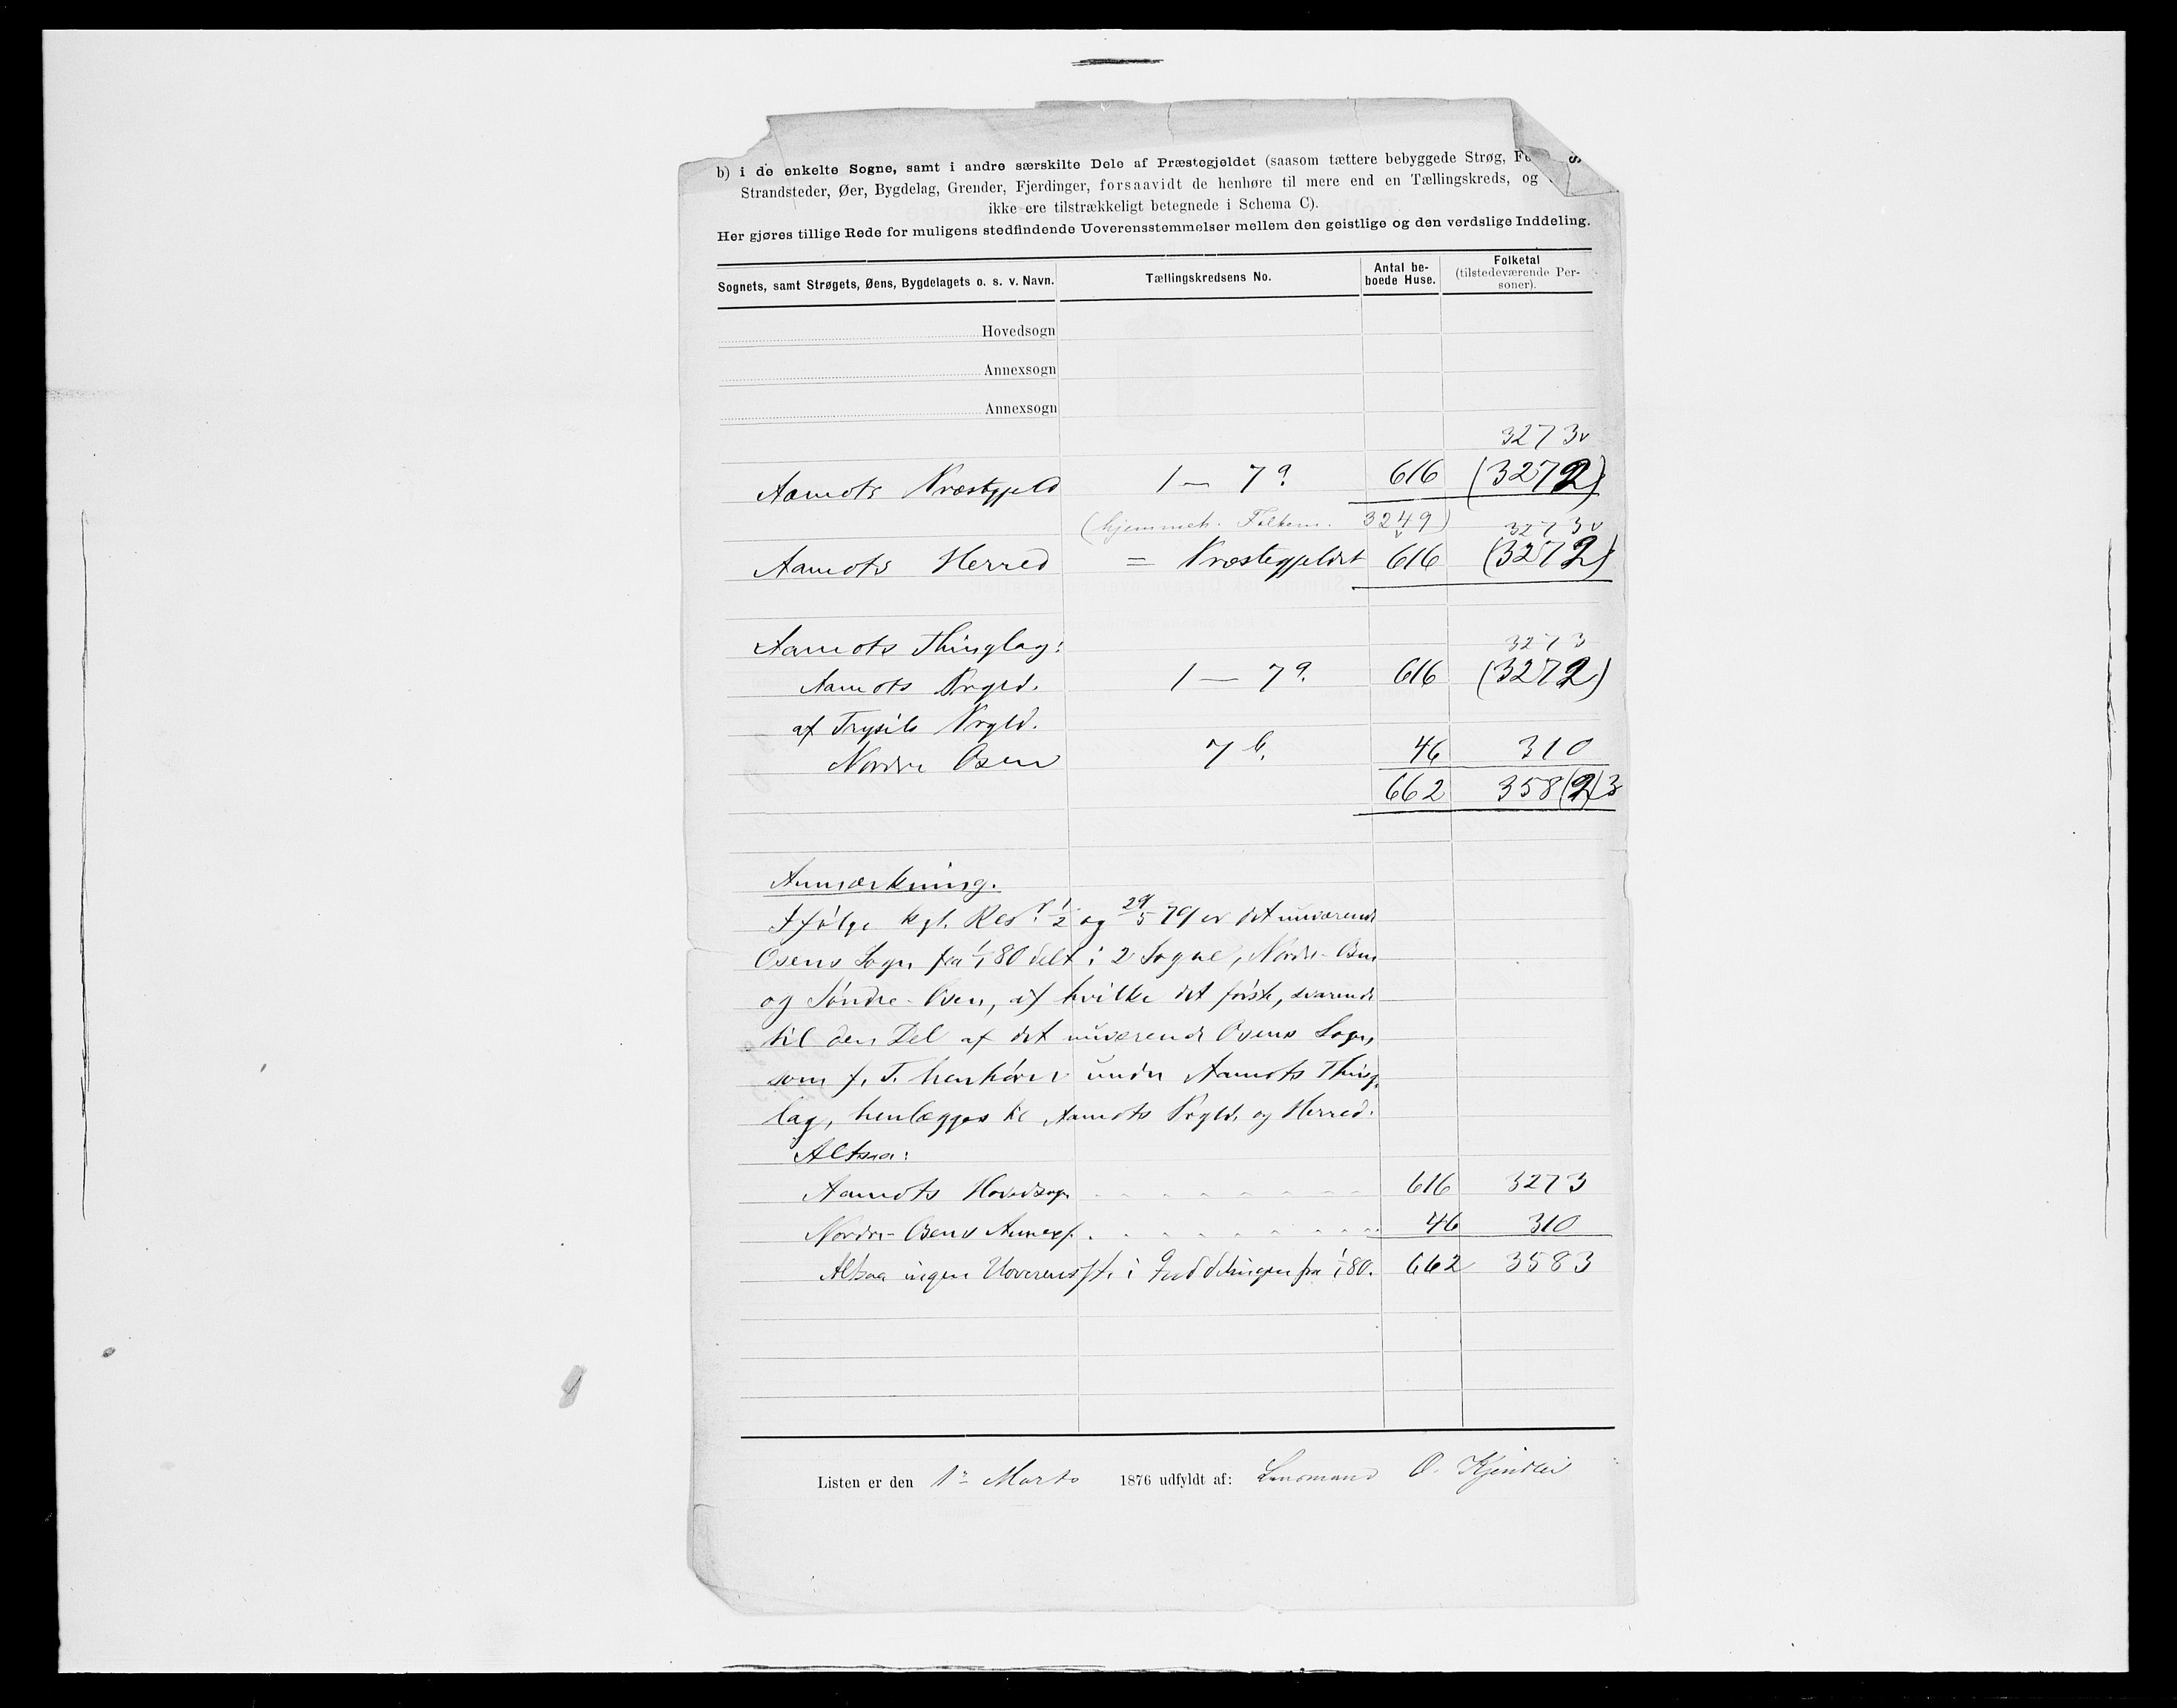 b) i de enkelte Sogne, samt i andre særskilte Dele af Præstegjeldet (saasom tættere bebyggede Strøg,
Strandsteder, Øer, Bygdelag, Grender, Fjerdinger, forsaavidt de henhøre til mere end en Tællingskreds, og
ikke ere tilstrækkeligt betegnede i Schema C).
Her gjøres tillige Rede for muligens stedfindende Uoverensstemmelser mellem den geistlige og den verdslige Inddeling.
Sognets, samt Strøgets, Øens, Bygdelagets o. s. v. Navn. Tællingskredsens No. Antal beboede Huse. Folketal (tilstedeværende Personer).
Hovedsogn
Annexsogn
Annexsogn
3273
Aamots Præstegjeld 1 — 7a. 616 (3272)
(hjemmeh. Folkem. 3249) 3273
Aamots Herred = Præstegjeldet 616 (3272)
Aamots Thinglag: 3273
Aamots Prgld. 1 — 7a. 616 (3272)
af Trysils Prgld.
Nordre Osen 7 b. 46 310
662 358(2)3
Anmærkning.
Ifølge kgl. Res. 1/2 og 29/5 79 er det nuværende
Osens Sogn fra 1/1 80 delt i 2 Sogne, Nordre-Osen
og Søndre-Osen, af hvilke det første, svarende
til den Del af det nuværende Osens Sogn,
som f. T. henhører under Aamots Thing-
lag, henlægges til Aamots Prgld. og Herred.
Altsaa:
Aamots Hovedsogn 616 3273
Nordre-Osens Annexs. 46 310
Altsaa ingen Uoverensst. i Inddelingen fra 1/1 80. 662 3583
Listen er den 1ste Marts 1876 udfyldt af: Lensmand O. Kjendlie